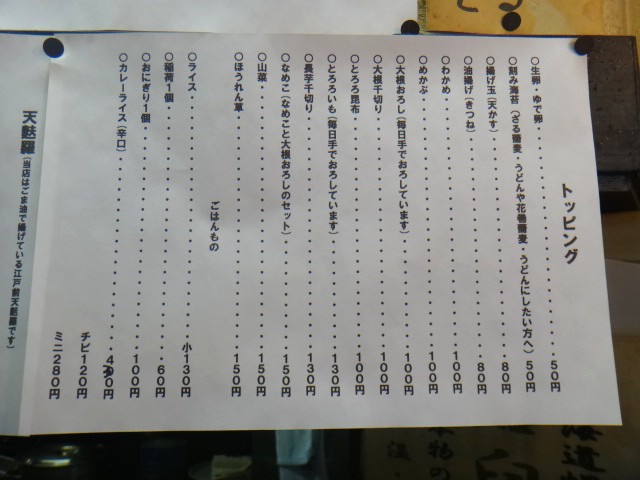 トッピング
○生卵・ゆで卵・・・・・・・・・・・・・・・・・・・・・50円
○刻み海苔（ざる蕎麦・うどんや花巻蕎麦・うどんにしたい方へ）50円
○揚げ玉（天かす）・・・・・・・・・・・・・・・・・・・80円
○油揚げ（きつね）・・・・・・・・・・・・・・・・・・・80円
○わかめ・・・・・・・・・・・・・・・・・・・・・・・100円
○めかぶ・・・・・・・・・・・・・・・・・・・・・・・100円
○大根おろし（毎日手でおろしています）・・・・・・・・・100円
○大根千切り・・・・・・・・・・・・・・・・・・・・・100円
○とろろ昆布・・・・・・・・・・・・・・・・・・・・・100円
○とろろいも（毎日手でおろしています）・・・・・・・・・130円
○長芋千切り・・・・・・・・・・・・・・・・・・・・・130円
○なめこ（なめこと大根おろしのセット）・・・・・・・・・150円
○山菜・・・・・・・・・・・・・・・・・・・・・・・・150円
○ほうれん草・・・・・・・・・・・・・・・・・・・・・150円
ごはんもの
○ライス・・・・・・・・・・・・・・・・・・・・・小130円
○稲荷1個・・・・・・・・・・・・・・・・・・・・・・60円
○おにぎり1個・・・・・・・・・・・・・・・・・・・・100円
○カレーライス（辛口）・・・・・・・・・・・・・・・・400円
チビ120円
ミニ280円
天麩羅（当店はごま油で揚げている江戸前天麩羅です）